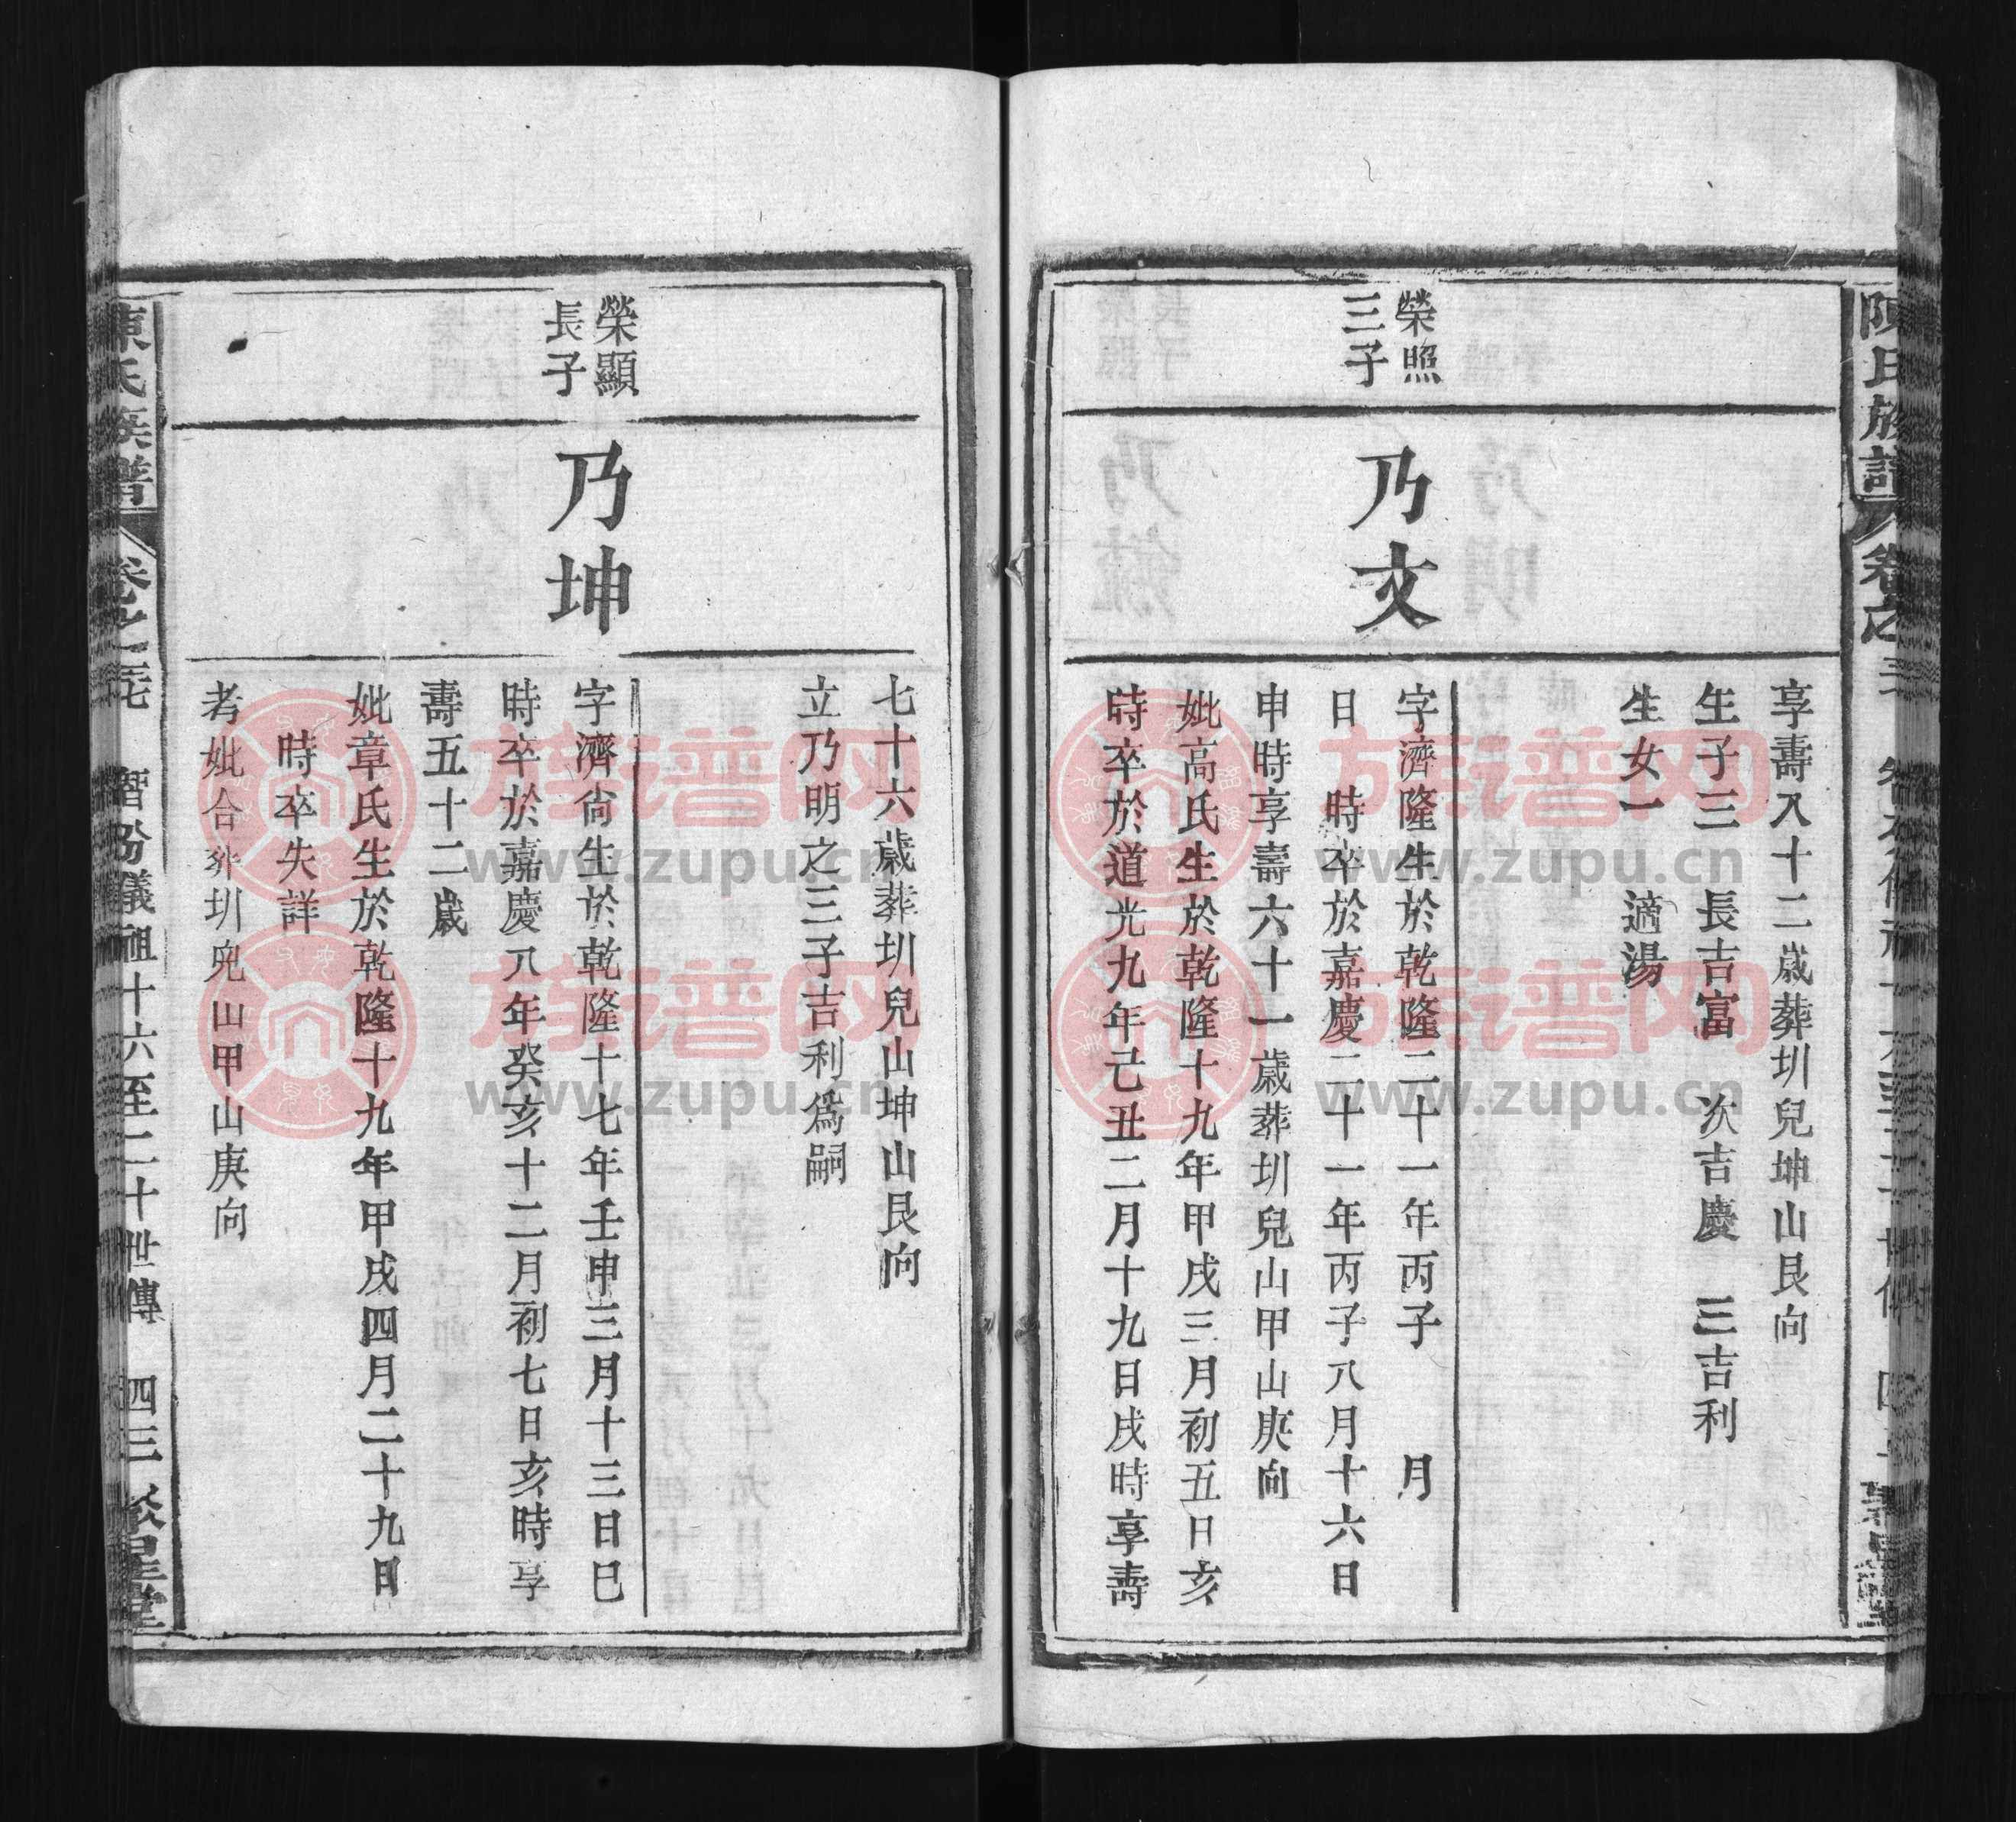 享壽八十二歲葬圳兒坤山艮向
生子三　長吉富　次吉慶　三吉利
生女一　適湯
榮照
三子
乃文
字濟隆生於乾隆二十一年丙子　月
日　時卒於嘉慶二十一年丙子八月十六日
申時享壽六十一歲葬圳兒山甲山庚向
妣高氏生於乾隆十九年甲戌三月初五日亥
時卒於道光九年己丑二月十九日戌時享壽
七十六歲葬圳兒山坤山艮向
立乃明之三子吉利為嗣
榮顯
長子
乃坤
字濟尙生於乾隆十七年壬申三月十三日巳
時卒於嘉慶八年癸亥十二月初七日亥時享
壽五十二歲
妣章氏生於乾隆十九年甲戌四月二十九日
時卒失詳
考妣合葬圳兒山甲山庚向
陳氏族譜　卷之　智份儀祖十六至二十世傳　四三　聚星堂
族谱网
www.zupu.cn
族谱网
www.zupu.cn
族谱网
www.zupu.cn
族谱网
www.zupu.cn